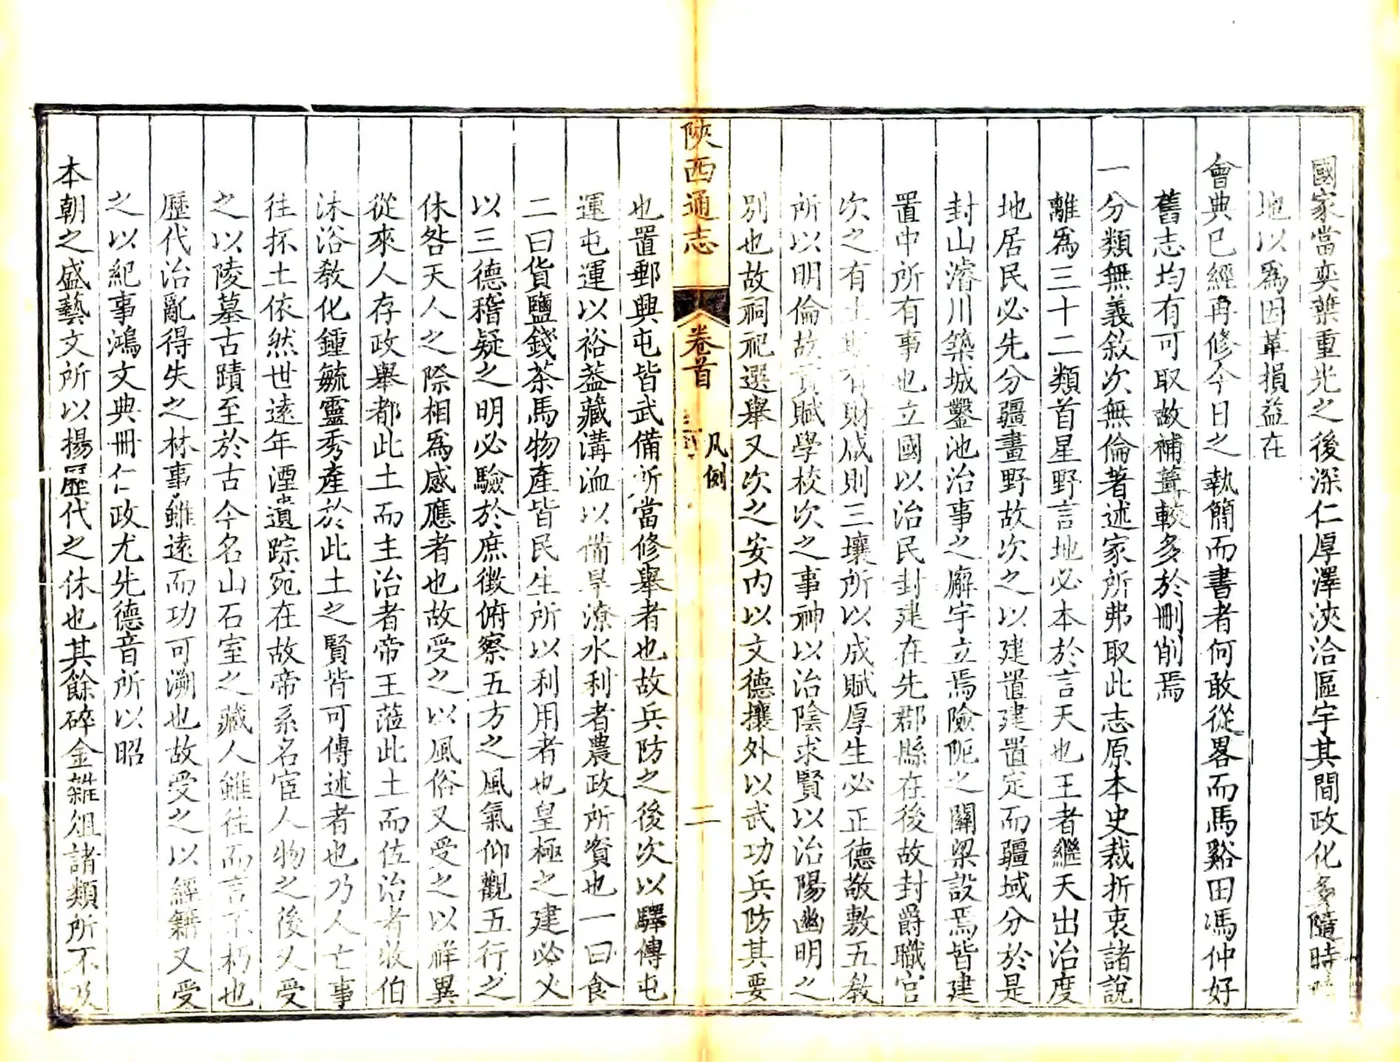 國家當奕葉重光之後深仁厚澤浹洽區宇其間政化多隨時
地以爲因革損益在
會典已經再修今日之執簡而書者何敢從畧而馬谿田馮仲好
舊志均有可取故補葺較多於刪削焉
一分類無義敘次無倫著述家所弗取此志原本史裁折衷諸說
離爲三十二類首星野言地必本於言天也王者繼天出治度
地居民必先分疆畫野故次之以建置建置定而疆域分於是
封山濬川築城鑿池治事之廨宇立焉險阨之關梁設焉皆建
置中所有事也立國以治民封建在先郡縣在後故封爵職官
次之有土有財成則三壤所以成賦厚生必正德敬敷五敎
所以明倫故貢賦學校次之事神以治陰求賢以治陽幽明之
別也故祠祀選舉又次之安內以文德攘外以武功兵防其要
陝西通志
卷首
凡例
二
也置郵興屯皆武備所當修舉者也故兵防之後次以驛傳屯
運屯運以裕葢藏溝洫以備旱潦水利者農政所資也一曰食
二曰貨鹽錢茶馬物產皆民生所以利用者也皇極之建必乂
以三德稽疑之明必驗於庶徵俯察五方之風氣仰觀五行之
休咎天人之際相爲感應者也故受之以風俗又受之以祥異
從來人存政舉都此土而主治者帝王蒞此土而佐治者牧伯
沐浴敎化鍾毓靈秀產於此土之賢皆可傳述者也乃人亡事
往抔土依然世遠年湮遺踪宛在故帝系名宦人物之後又受
之以陵墓古蹟至於古今名山石室之藏人雖往而言不朽也
歷代治亂得失之林事雖遠而功可溯也故受之以經籍又受
之以紀事鴻文典冊仁政尤先德音所以昭
本朝之盛藝文所以揚歷代之休也其餘碎金雜俎諸類所不及